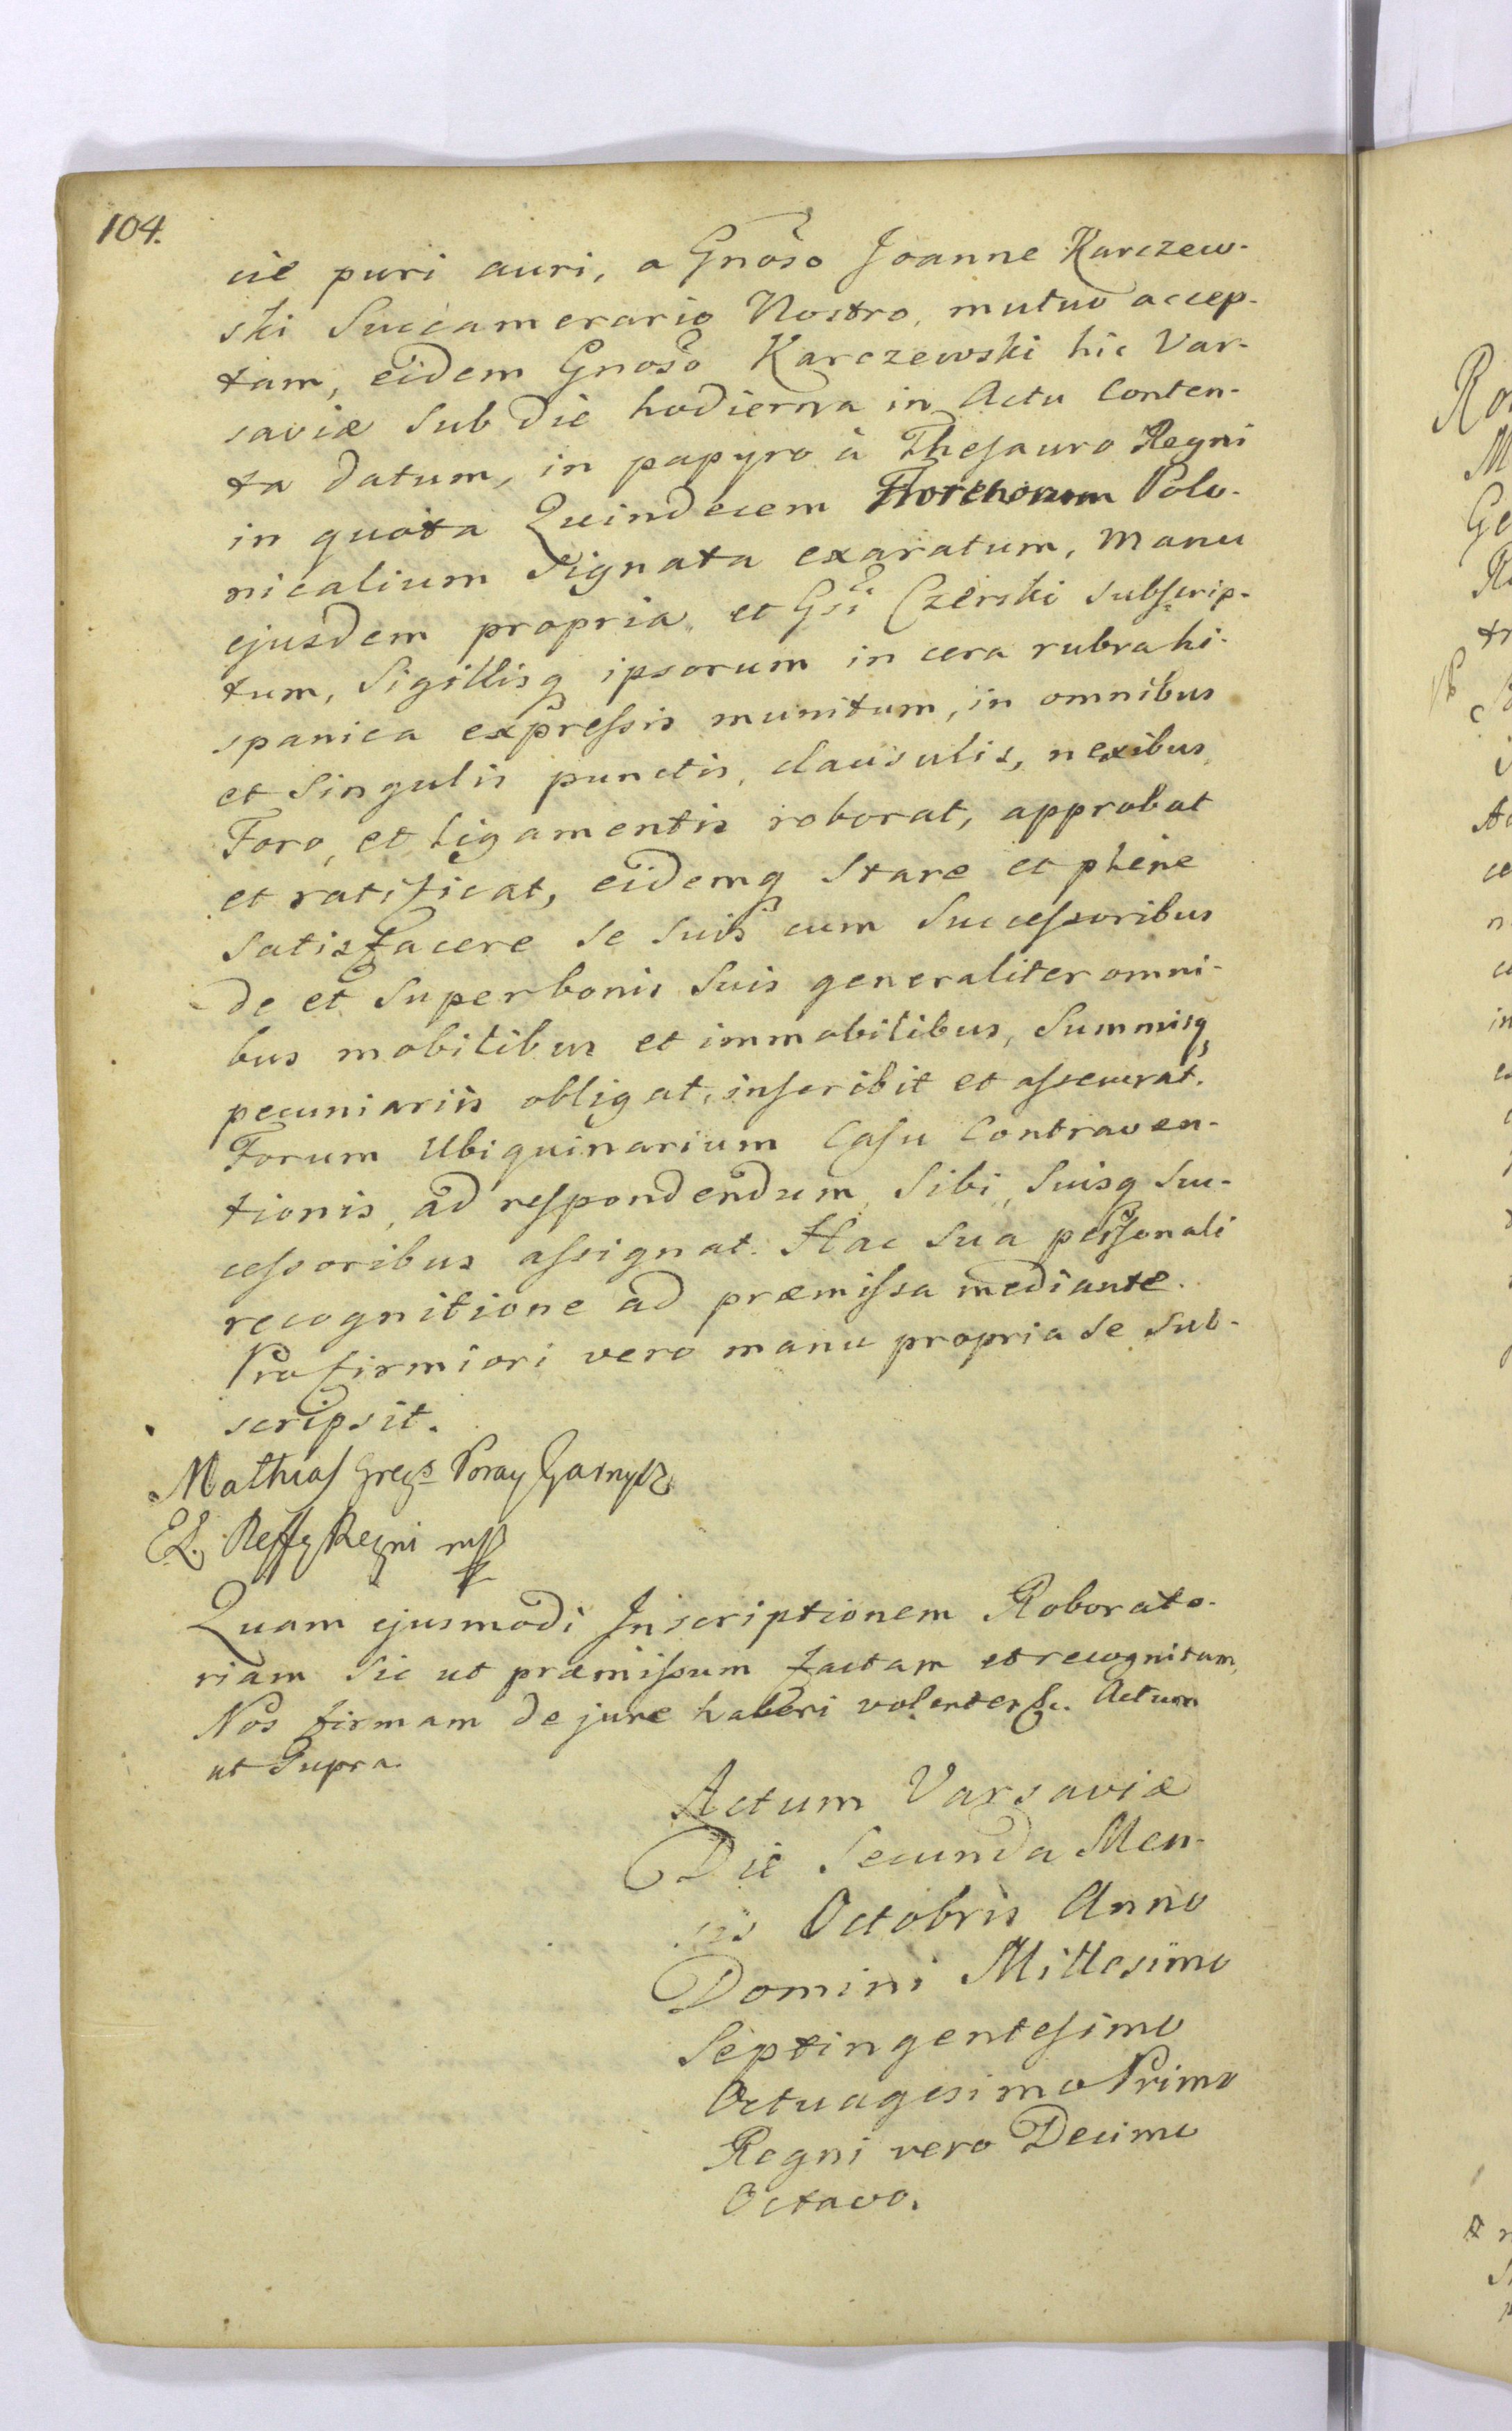 104.
cie puri auri, a Gnoso Joanne Karczew-
ski Succamerario Nostro, mutuo accep-
tam, eidem Gnoso Karczewski hic Var-
saviæ sub die hodierna in Actu Conten-
ta datum, in papyro à Thesauro Regni
in quota Quindecem Polo-
nicalium signata exaratum, manu
ejusdem propria et Gsi Czerski subscrip-
tum, Sigillisq ipsorum in cera rubra hi-
spanica expressis munitum, in omnibus
et singulis punctis, clausulis, nexibus,
Foro, et ligamentis roborat, approbat
et ratificat, eidemq stare et plene
satisfacere se suis cum Successoribus
de et super bonis suis generaliter omni-
bus mobilibus et immobilibus, Summisq
pecuniariis obligat, inscribit et assecurat.
Forum Ubiquinarium Casu Contraven-
tionis, ad respondendum, sibi, suisq suc-
cessoribus assignat. Hac sua personali
recognitione ad præmissa mediante.
Pro firmiori vero manu propria se sub-
scripsit.
Mathias Poray
Regni
Quam ejusmodi Inscriptionem Roborato-
riam sic ut præmissum factam et recognitam,
Nos firmam de jure haberi volentes &c. Actum
ut Supra.
Actum Varsaviæ
Die Secunda Men-
sis Octobris Anno
Domini Millesimo
Septingentesimo
Octuagesimo Primo
Regni vero Decimo
Octavo.